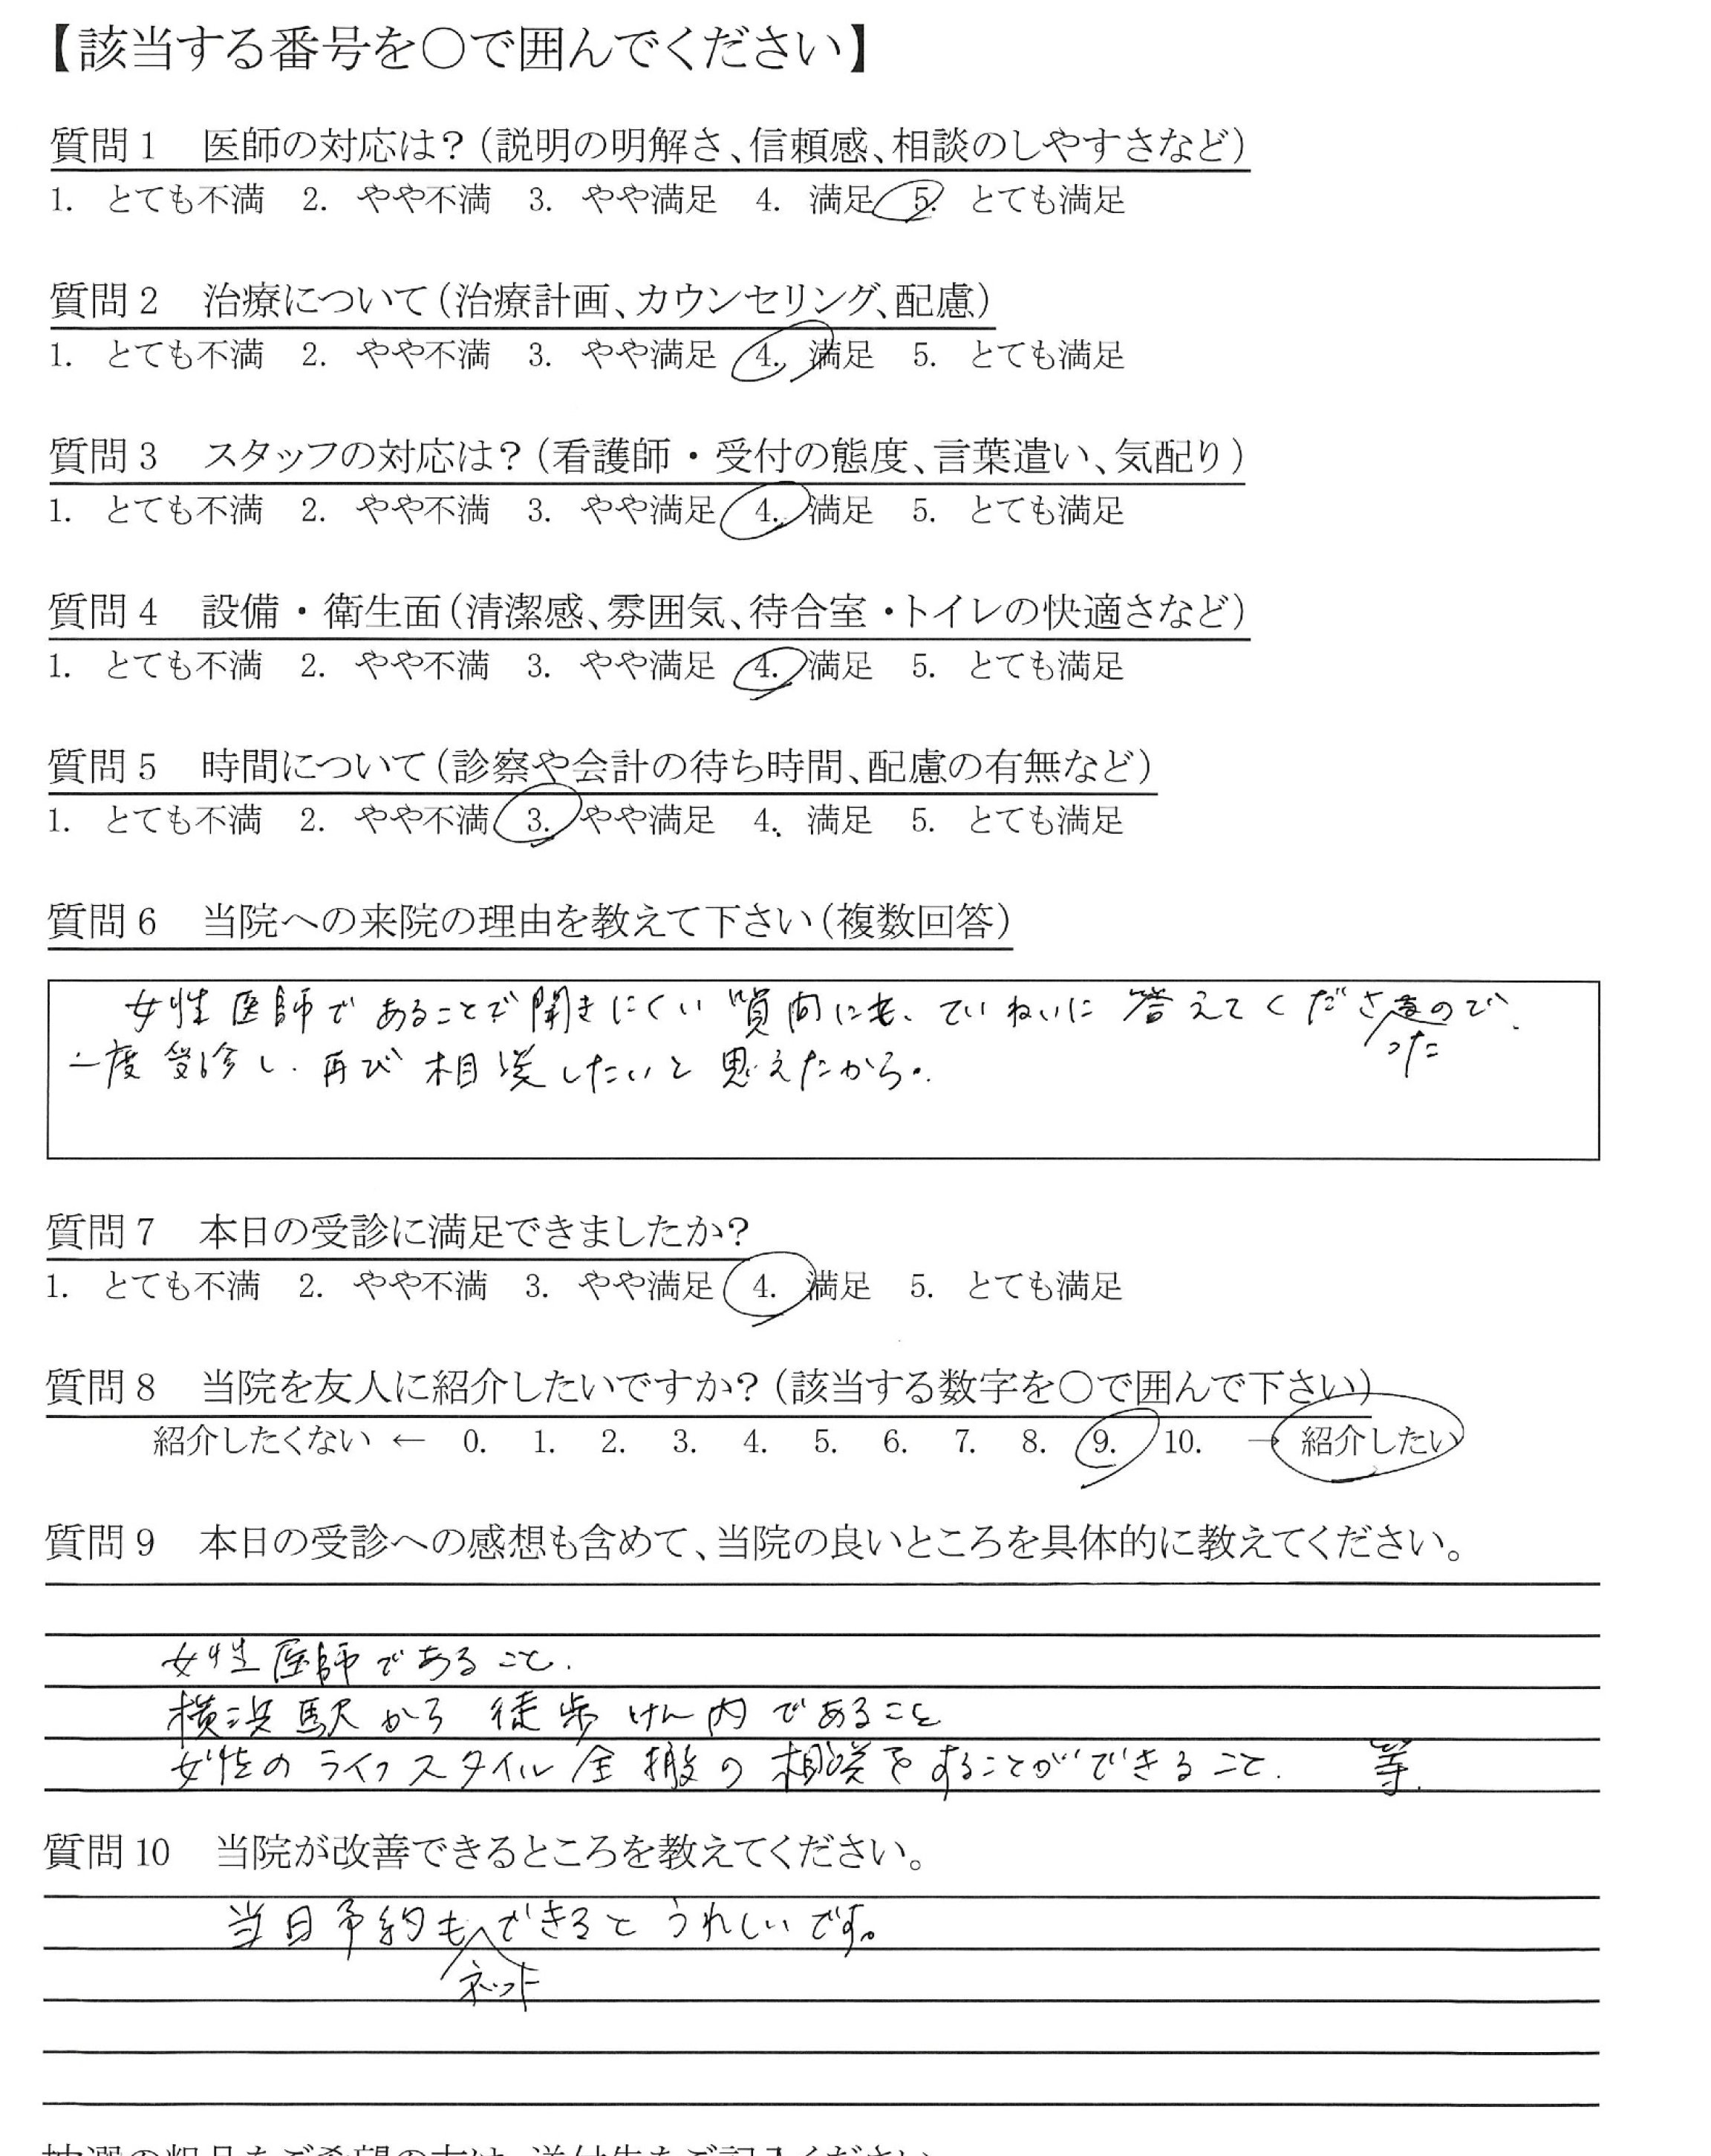 【該当する番号を○で囲んでください】
質問1　医師の対応は?(説明の明解さ、信頼感、相談のしやすさなど)
1.　とても不満　2.　やや不満　3.　やや満足　4.　満足　5.　とても満足
質問2　治療について(治療計画、カウンセリング、配慮)
1.　とても不満　2.　やや不満　3.　やや満足　4.　満足　5.　とても満足
質問3　スタッフの対応は?(看護師・受付の態度、言葉遣い、気配り)
1.　とても不満　2.　やや不満　3.　やや満足　4.　満足　5.　とても満足
質問4　設備・衛生面(清潔感、雰囲気、待合室・トイレの快適さなど)
1.　とても不満　2.　やや不満　3.　やや満足　4.　満足　5.　とても満足
質問5　時間について(診察や会計の待ち時間、配慮の有無など)
1.　とても不満　2.　やや不満　3.　やや満足　4.　満足　5.　とても満足
質問6　当院への来院の理由を教えて下さい(複数回答)
女性医師であることで聞きにくい質問にも、ていねいに答えてくださったので、
一度受診し、再び相談したいと思えたから。
質問7　本日の受診に満足できましたか?
1.　とても不満　2.　やや不満　3.　やや満足　4.　満足　5.　とても満足
質問8　当院を友人に紹介したいですか?(該当する数字を○で囲んで下さい)
紹介したくない ← 0.　1.　2.　3.　4.　5.　6.　7.　8.　9.　10.　→ 紹介したい
質問9　本日の受診への感想も含めて、当院の良いところを具体的に教えてください。
女性医師であること.
横浜駅から徒歩けん内であること
女性のライフスタイル全搬の相談をすることができること.　等.
質問10　当院が改善できるところを教えてください。
当日予約もネットできるとうれしいです。
抽選の粗品をご希望の方は、送付先をご記入ください